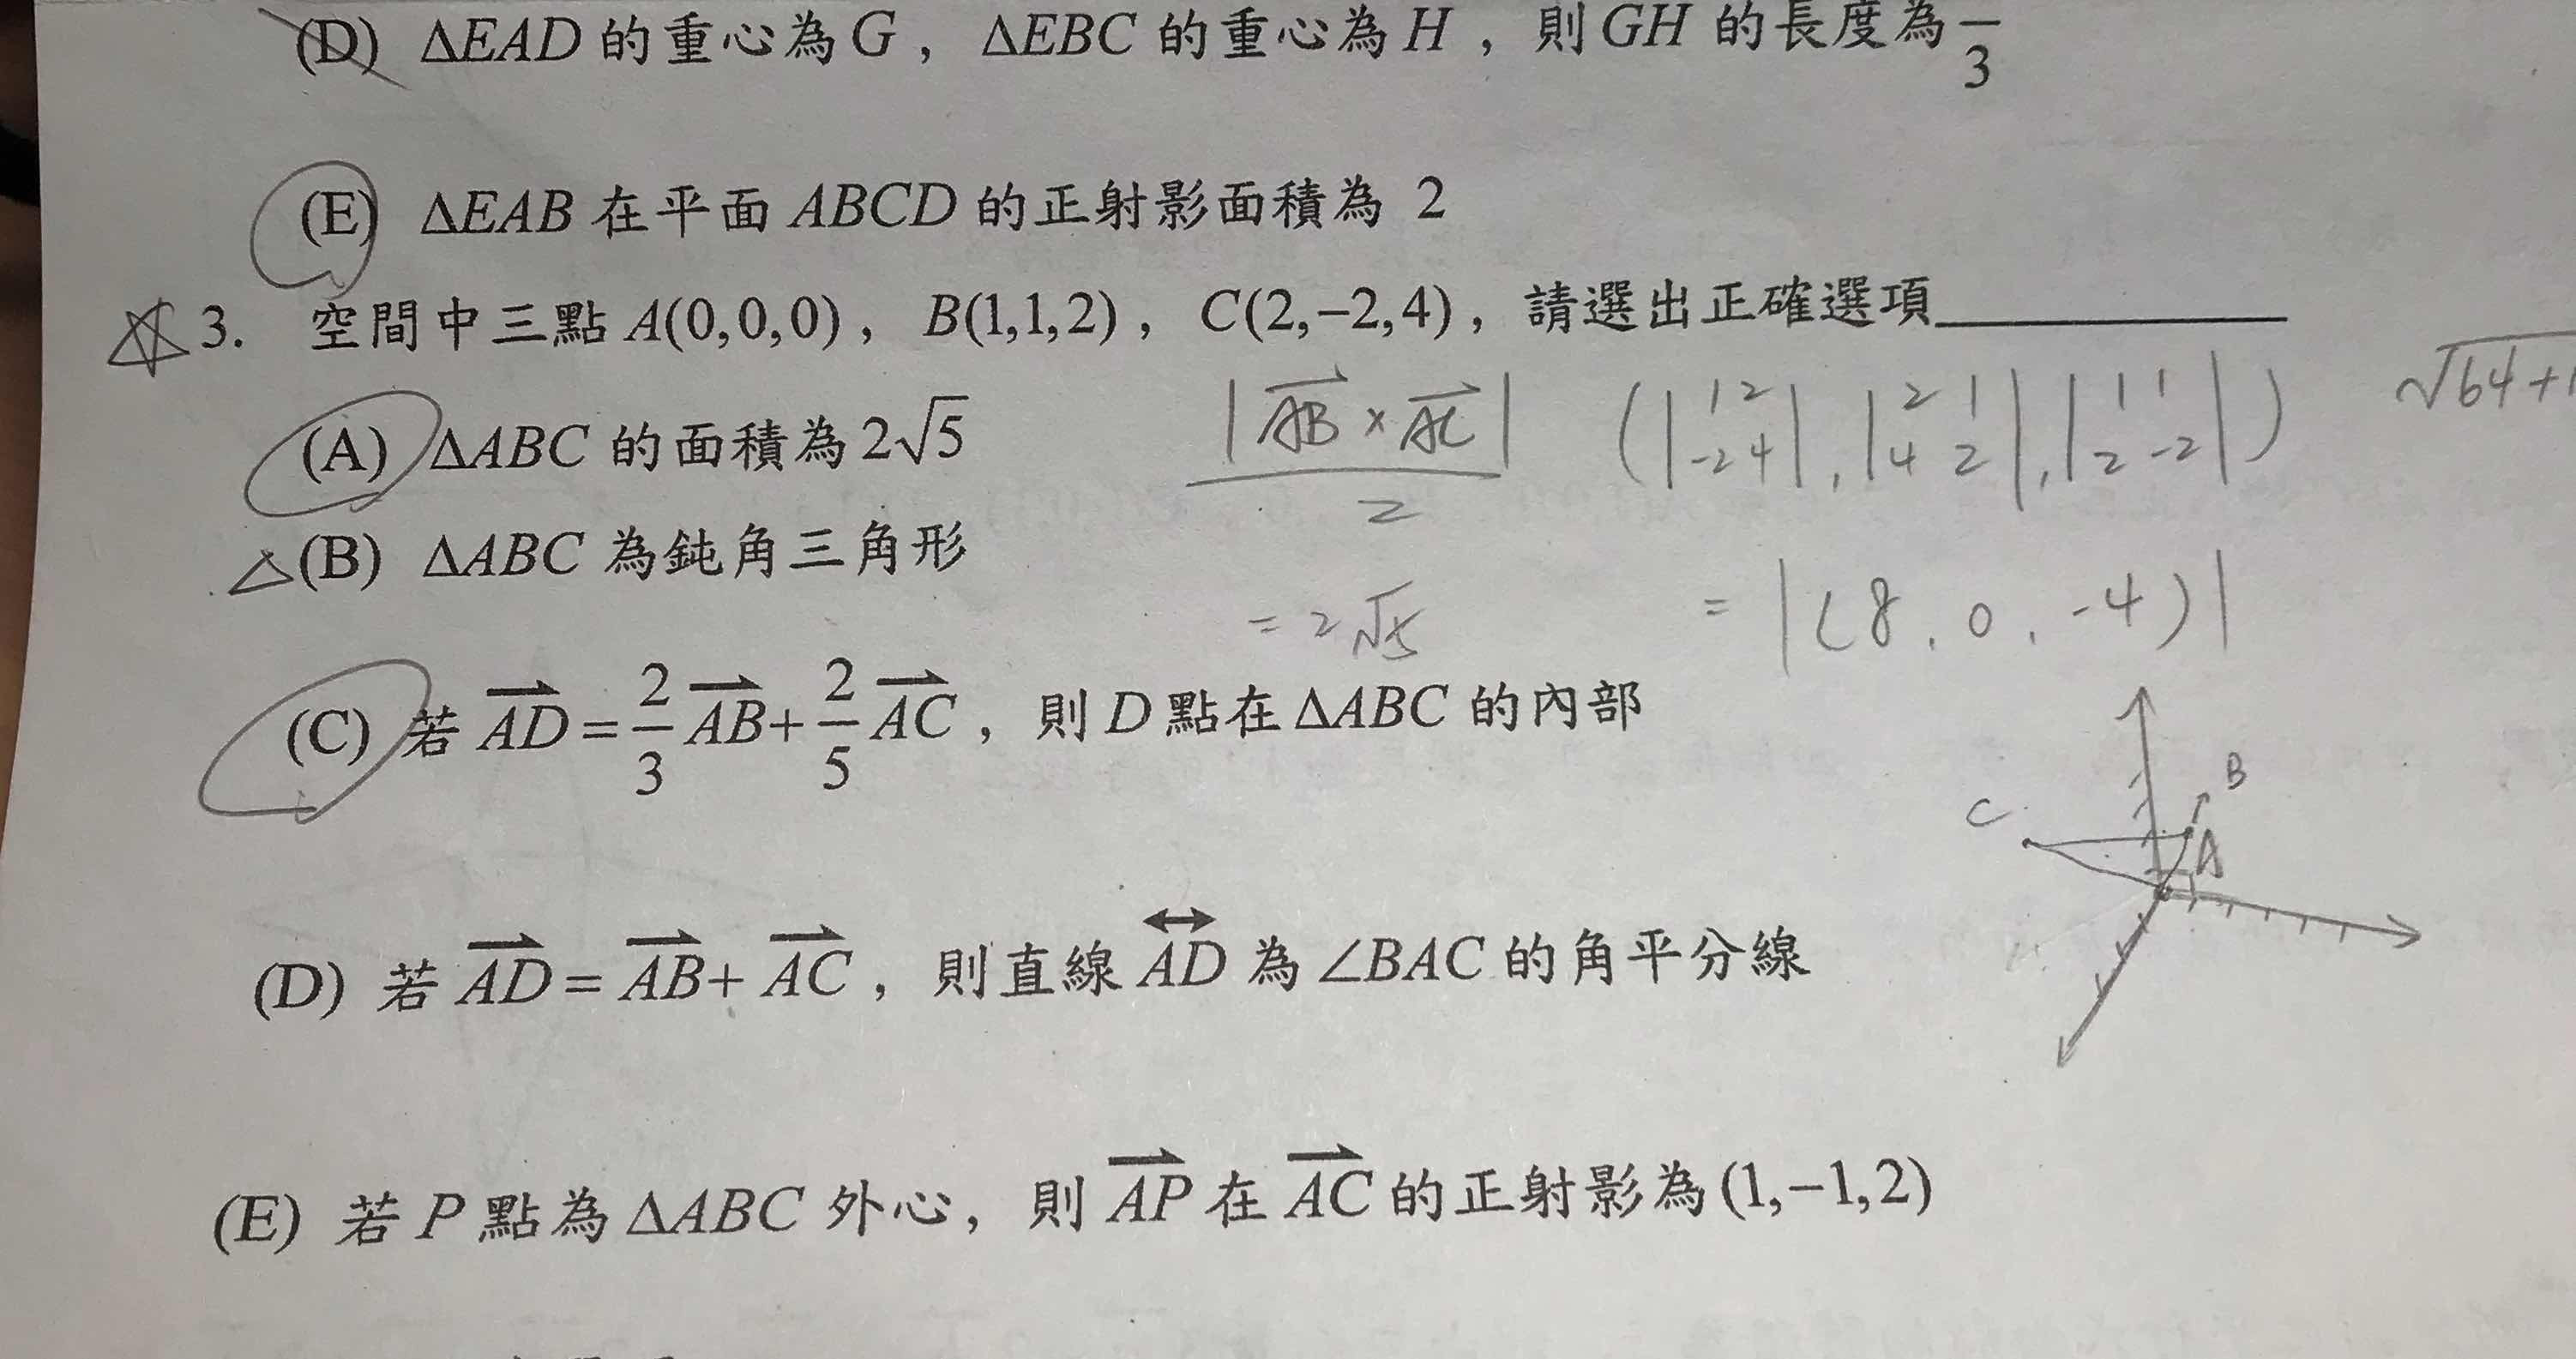 (D) ΔEAD 的重心為 G ， ΔEBC 的重心為 H ，則 GH 的長度為 /3
(E) ΔEAB 在平面 ABCD 的正射影面積為 2
3. 空間中三點 A(0,0,0) ， B(1,1,2) ， C(2,−2,4) ，請選出正確選項
(A) ΔABC 的面積為 2√5
|AB × AC| / 2
(|1 2 / -2 4| , |2 1 / 4 2| , |1 1 / 2 -2|)
√64+1
(B) ΔABC 為鈍角三角形
= 2√5
= |(8, 0, -4)|
(C) 若 AD = 2/3 AB + 2/5 AC ，則 D 點在 ΔABC 的內部
B
C
A
(D) 若 AD = AB + AC ，則直線 AD 為 ∠BAC 的角平分線
(E) 若 P 點為 ΔABC 外心，則 AP 在 AC 的正射影為 (1,−1,2)